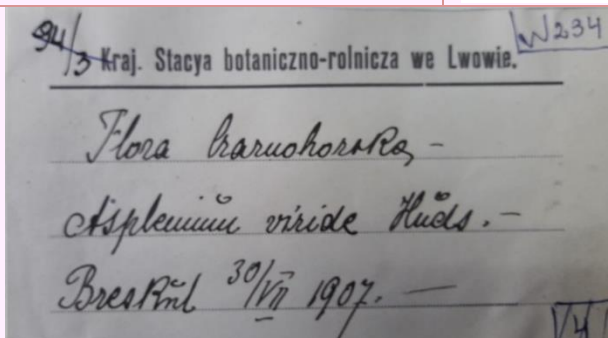 94/3 Kraj. Stacya botaniczno-rolnicza we Lwowie.
W234
Flora Czarnohorska, -
Asplenium viride Huds. -
Breskul 30/VII 1907. —